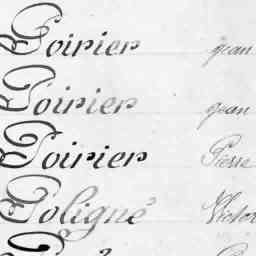 Poirier Jean
Poirier Jean
Poirier Pierre
Poligné Victor